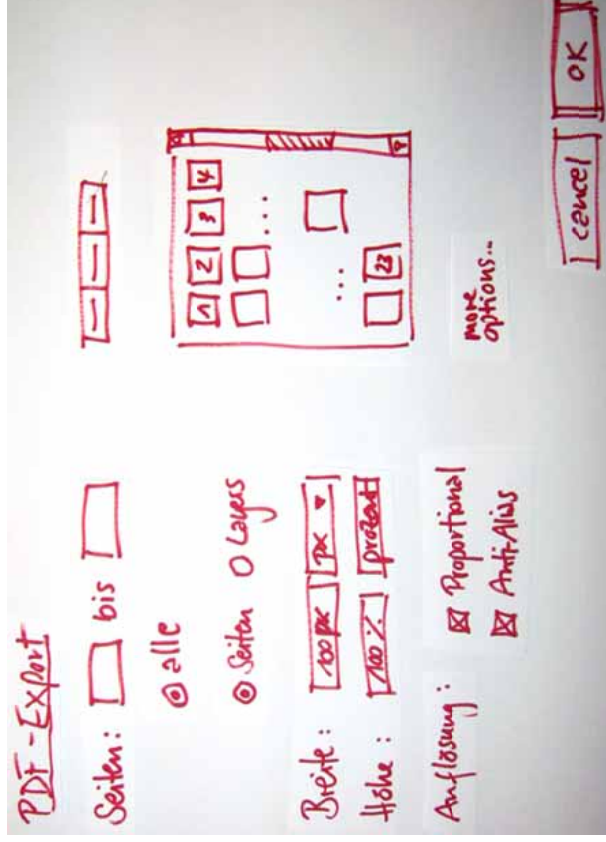 PDF-Export
Seiten: bis
alle
Seiten Layers
1 2 3 4
...
...
23
Breite: 100 px px
Höhe: 100 % prozent
Auflösung: Proportional
Anti-Alias
more
options...
cancel OK